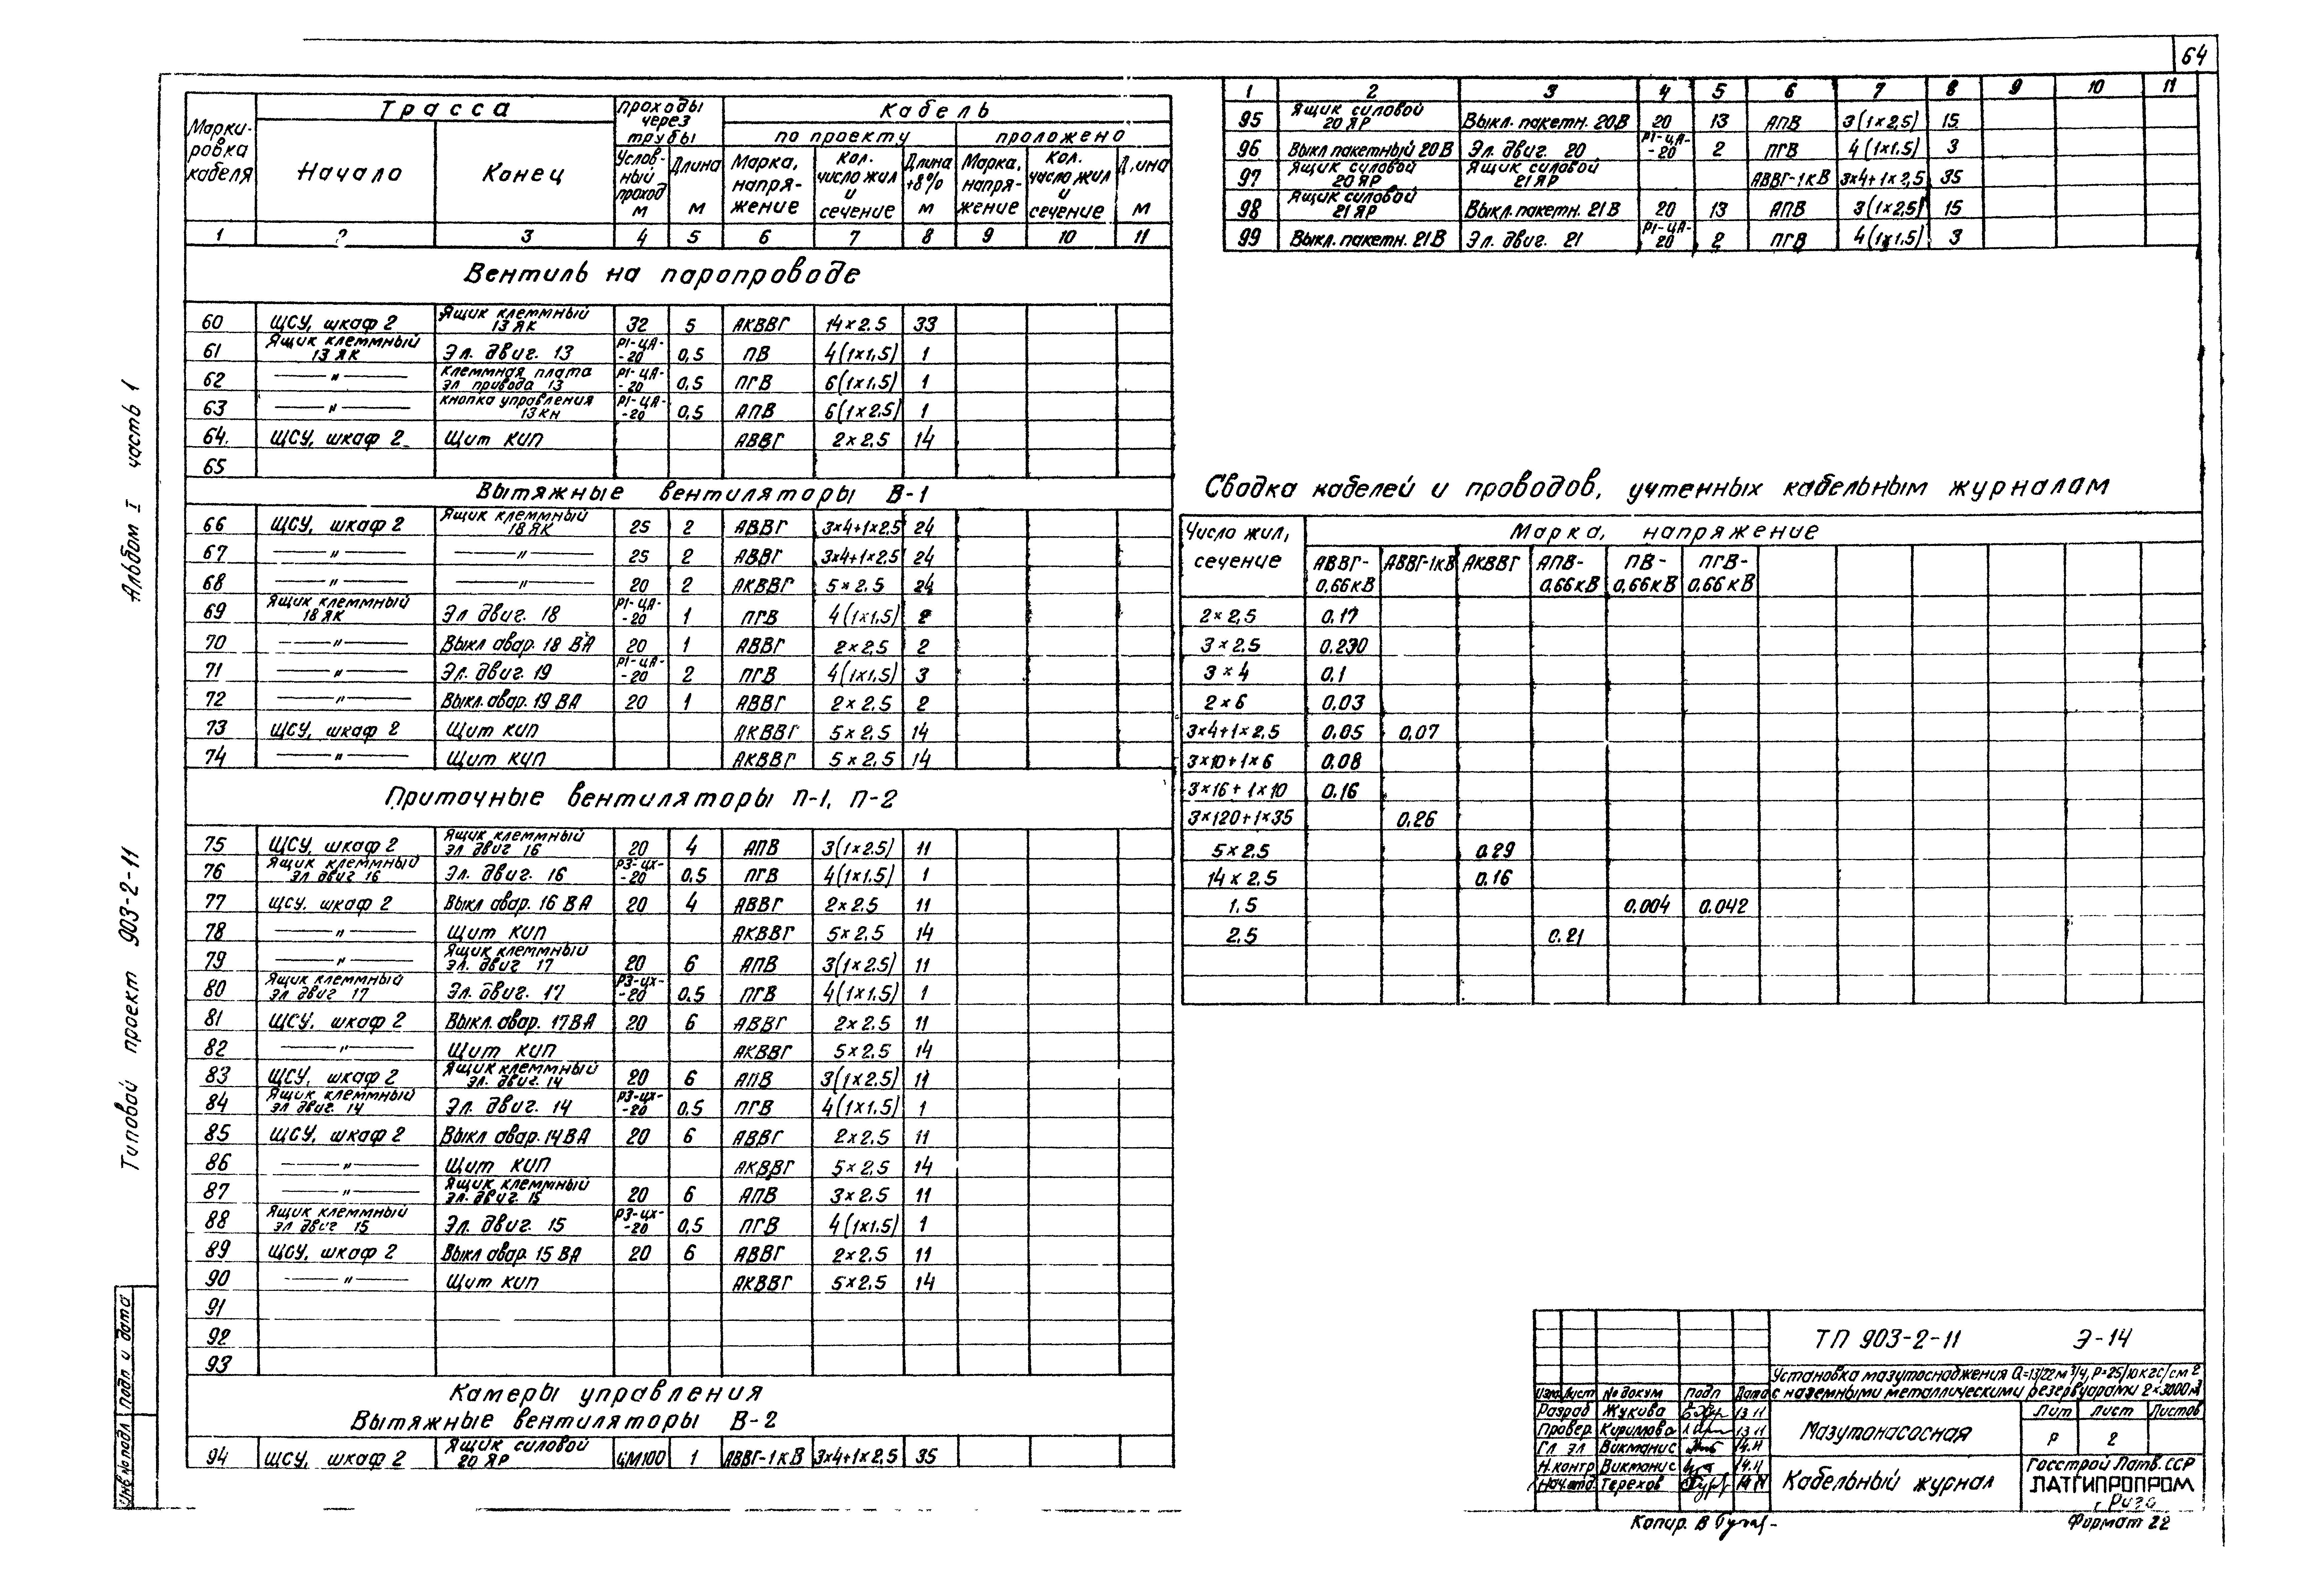 64
Альбом I часть 1
Типовой проект 903-2-11
Инв № подл. Подп и дата
Марки-ровка кабеля | Трасса | Проходы через трубы | Кабель
по проекту | проложено
Начало | Конец | Услов-ный проход м | Длина м | Марка, напря-жение | Кол. число жил и сечение | Длина +8% м | Марка, напря-жение | Кол. число жил и сечение | Длина м
1 | 2 | 3 | 4 | 5 | 6 | 7 | 8 | 9 | 10 | 11
Вентиль на паропроводе
60 | ЩСУ, шкаф 2 | Ящик клеммный 13 ЯК | 32 | 5 | АКВВГ | 14×2.5 | 33
61 | Ящик клеммный 13 ЯК | Эл. двиг. 13 | Р1-ЦА--20 | 0,5 | ПВ | 4(1×1,5) | 1
62 | —"— | Клеммная плата эл привода 13 | Р1-ЦА--20 | 0,5 | ПГВ | 6(1×1,5) | 1
63 | —"— | Кнопка управления 13КН | Р1-ЦА--20 | 0,5 | АПВ | 6(1×2,5) | 1
64. | ЩСУ, шкаф 2 | Щит КИП | АВВГ | 2×2,5 | 14
65
Вытяжные вентиляторы В-1
66 | ЩСУ, шкаф 2 | Ящик клеммный 18 ЯК | 25 | 2 | АВВГ | 3×4+1×2,5 | 24
67 | —"— | —"— | 25 | 2 | АВВГ | 3×4+1×2,5 | 24
68 | —"— | —"— | 20 | 2 | АКВВГ | 5×2.5 | 24
69 | Ящик клеммный 18 ЯК | Эл двиг. 18 | Р1-ЦА--20 | 1 | ПГВ | 4(1×1.5) | 2
70 | —"— | Выкл авар. 18 ВА | 20 | 1 | АВВГ | 2×2,5 | 2
71 | —"— | Эл. двиг. 19 | Р1-ЦА--20 | 2 | ПГВ | 4(1×1.5) | 3
72 | —"— | Выкл. авар. 19 ВА | 20 | 1 | АВВГ | 2×2.5 | 2
73 | ЩСУ, шкаф 2 | Щит КИП | АКВВГ | 5×2.5 | 14
74 | —"— | Щит КИП | АКВВГ | 5×2.5 | 14
Приточные вентиляторы П-1, П-2
75 | ЩСУ, шкаф 2 | Ящик клеммный эл двиг 16 | 20 | 4 | АПВ | 3(1×2.5) | 11
76 | Ящик клеммный эл двиг 16 | Эл. двиг. 16 | Р3-ЦХ--20 | 0,5 | ПГВ | 4(1×1.5) | 1
77 | ЩСУ. шкаф 2 | Выкл авар. 16 ВА | 20 | 4 | АВВГ | 2×2.5 | 11
78 | —"— | Щит КИП | АКВВГ | 5×2.5 | 14
79 | —"— | Ящик клеммный эл. двиг 17 | 20 | 6 | АПВ | 3(1×2.5) | 11
80 | Ящик клеммный эл двиг 17 | Эл. двиг. 17 | Р3-ЦХ--20 | 0,5 | ПГВ | 4(1×1,5) | 1
81 | ЩСУ. шкаф 2 | Выкл. авар. 17 ВА | 20 | 6 | АВВГ | 2×2.5 | 11
82 | —"— | Щит КИП | АКВВГ | 5×2.5 | 14
83 | ЩСУ, шкаф 2 | Ящик клеммный эл. двиг. 14 | 20 | 6 | АПВ | 3(1×2.5) | 11
84 | Ящик клеммный эл двиг. 14 | Эл. двиг. 14 | Р3-ЦХ--20 | 0.5 | ПГВ | 4(1×1.5) | 1
85 | ЩСУ, шкаф 2 | Выкл авар. 14 ВА | 20 | 6 | АВВГ | 2×2,5 | 11
86 | —"— | Щит КИП | АКВВГ | 5×2,5 | 14
87 | —"— | Ящик клеммный эл. двиг. 15 | 20 | 6 | АПВ | 3×2,5 | 11
88 | Ящик клеммный эл двиг 15 | Эл. двиг. 15 | Р3-ЦХ--20 | 0,5 | ПГВ | 4(1×1.5) | 1
89 | ЩСУ, шкаф 2 | Выкл авар. 15 ВА | 20 | 6 | АВВГ | 2×2.5 | 11
90 | —"— | Щит КИП | АКВВГ | 5×2.5 | 14
91
92
93
Камеры управления
Вытяжные вентиляторы В-2
94 | ЩСУ, шкаф 2 | Ящик силовой 20 ЯР | ЦМ100 | 1 | АВВГ-1кВ | 3×4+1×2,5 | 35
1 | 2 | 3 | 4 | 5 | 6 | 7 | 8 | 9 | 10 | 11
95 | Ящик силовой 20 ЯР | Выкл. пакетн. 20В | 20 | 13 | АПВ | 3(1×2,5) | 15
96 | Выкл пакетный 20В | Эл. двиг. 20 | Р1-ЦА--20 | 2 | ПГВ | 4(1×1.5) | 3
97 | Ящик силовой 20 ЯР | Ящик силовой 21 ЯР | АВВГ-1кВ | 3×4+1×2,5 | 35
98 | Ящик силовой 21 ЯР | Выкл. пакетн. 21 В | 20 | 13 | АПВ | 3(1×2,5) | 15
99 | Выкл. пакетн. 21 В | Эл. двиг. 21 | Р1-ЦА-20 | 2 | ПГВ | 4(1×1.5) | 3
Сводка кабелей и проводов, учтенных кабельным журналам
Число жил, сечение | Марка, напряжение
АВВГ-0,66кВ | АВВГ-1кВ | АКВВГ | АПВ-0,66кВ | ПВ-0,66кВ | ПГВ-0,66кВ
2×2,5 | 0.17
3×2.5 | 0.230
3×4 | 0.1
2×6 | 0.03
3×4+1×2,5 | 0.05 | 0,07
3×10+1×6 | 0.08
3×16+1×10 | 0.16
3×120+1×35 | 0.26
5×2.5 | 0.29
14×2.5 | 0.16
1.5 | 0.004 | 0.042
2.5 | 0.21
ТП 903-2-11 Э-14
Установка мазутоснабжения Q=13/22м³/ч, Р=25/10 кгс/см²
с наземными металлическими резервуарами 2×3000м³
Изм. Лист № докум подп Дата
Разраб Жукова 13 11
Провер. Кириллова 13 11
Гл эл Викманис 14.11
Н.контр Викманис 14.11
Нач.отд. Терехов
Мазутонасосная
Лит Лист Листов
Р 2
Кабельный журнал
Госстрой Латв. ССР
ЛАТГИПРОПРОМ
г. Рига
Копир. В
Формат 22